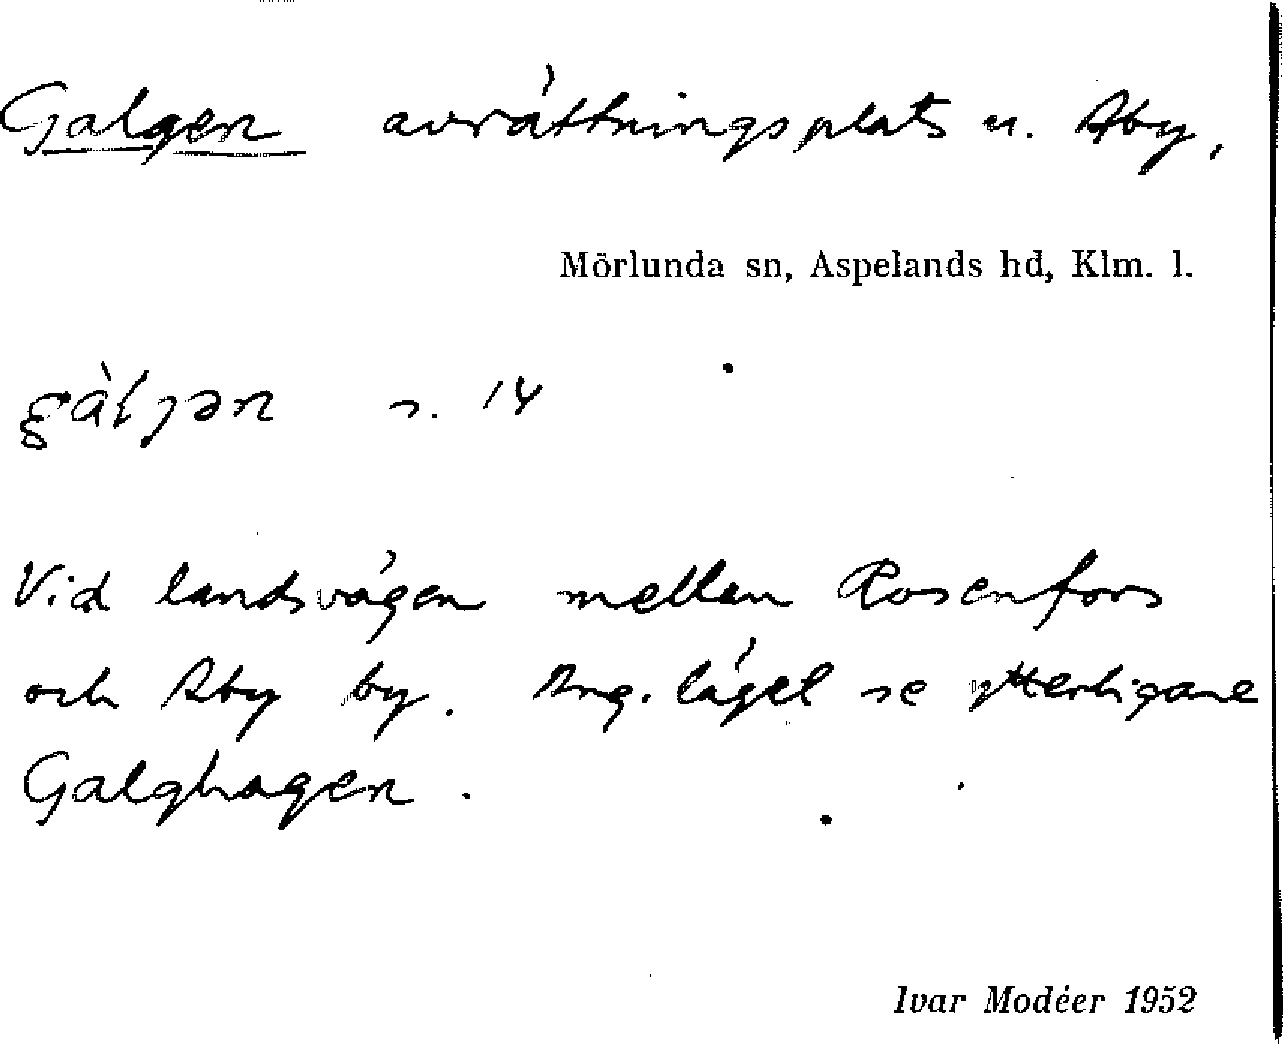 Galgen avrättningsplats u. Åby,
Mörlunda sn, Aspelands hd, Klm. l.
s. 14
Vid landsvägen mellan Rosenfors
och Åby by. Ang. läget se ytterligare
Galghagen.
Ivar Modéer 1952